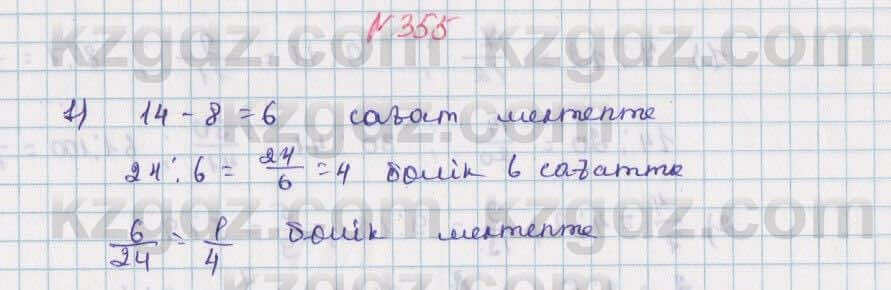 № 355
1) 14 - 8 = 6 сағат мектепте
24 : 6 = 24/6 = 4 бөлік 6 сағатта
6/24 = 1/4 бөлік мектепте
kzgdz.com kzgdz.com
kzgdz.com kzgdz.com
kzgdz.com kzgdz.com